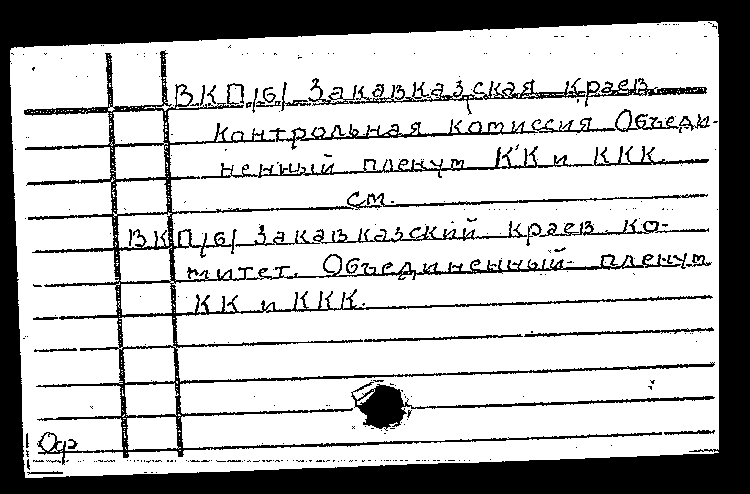 ВКП/б/ Закавказская краев.
контрольная комиссия Объеди-
ненный пленум КК и ККК.
см.
ВКП/б/ Закавказский краев. ко-
митет. Объединенный пленум
КК и ККК.
Оф